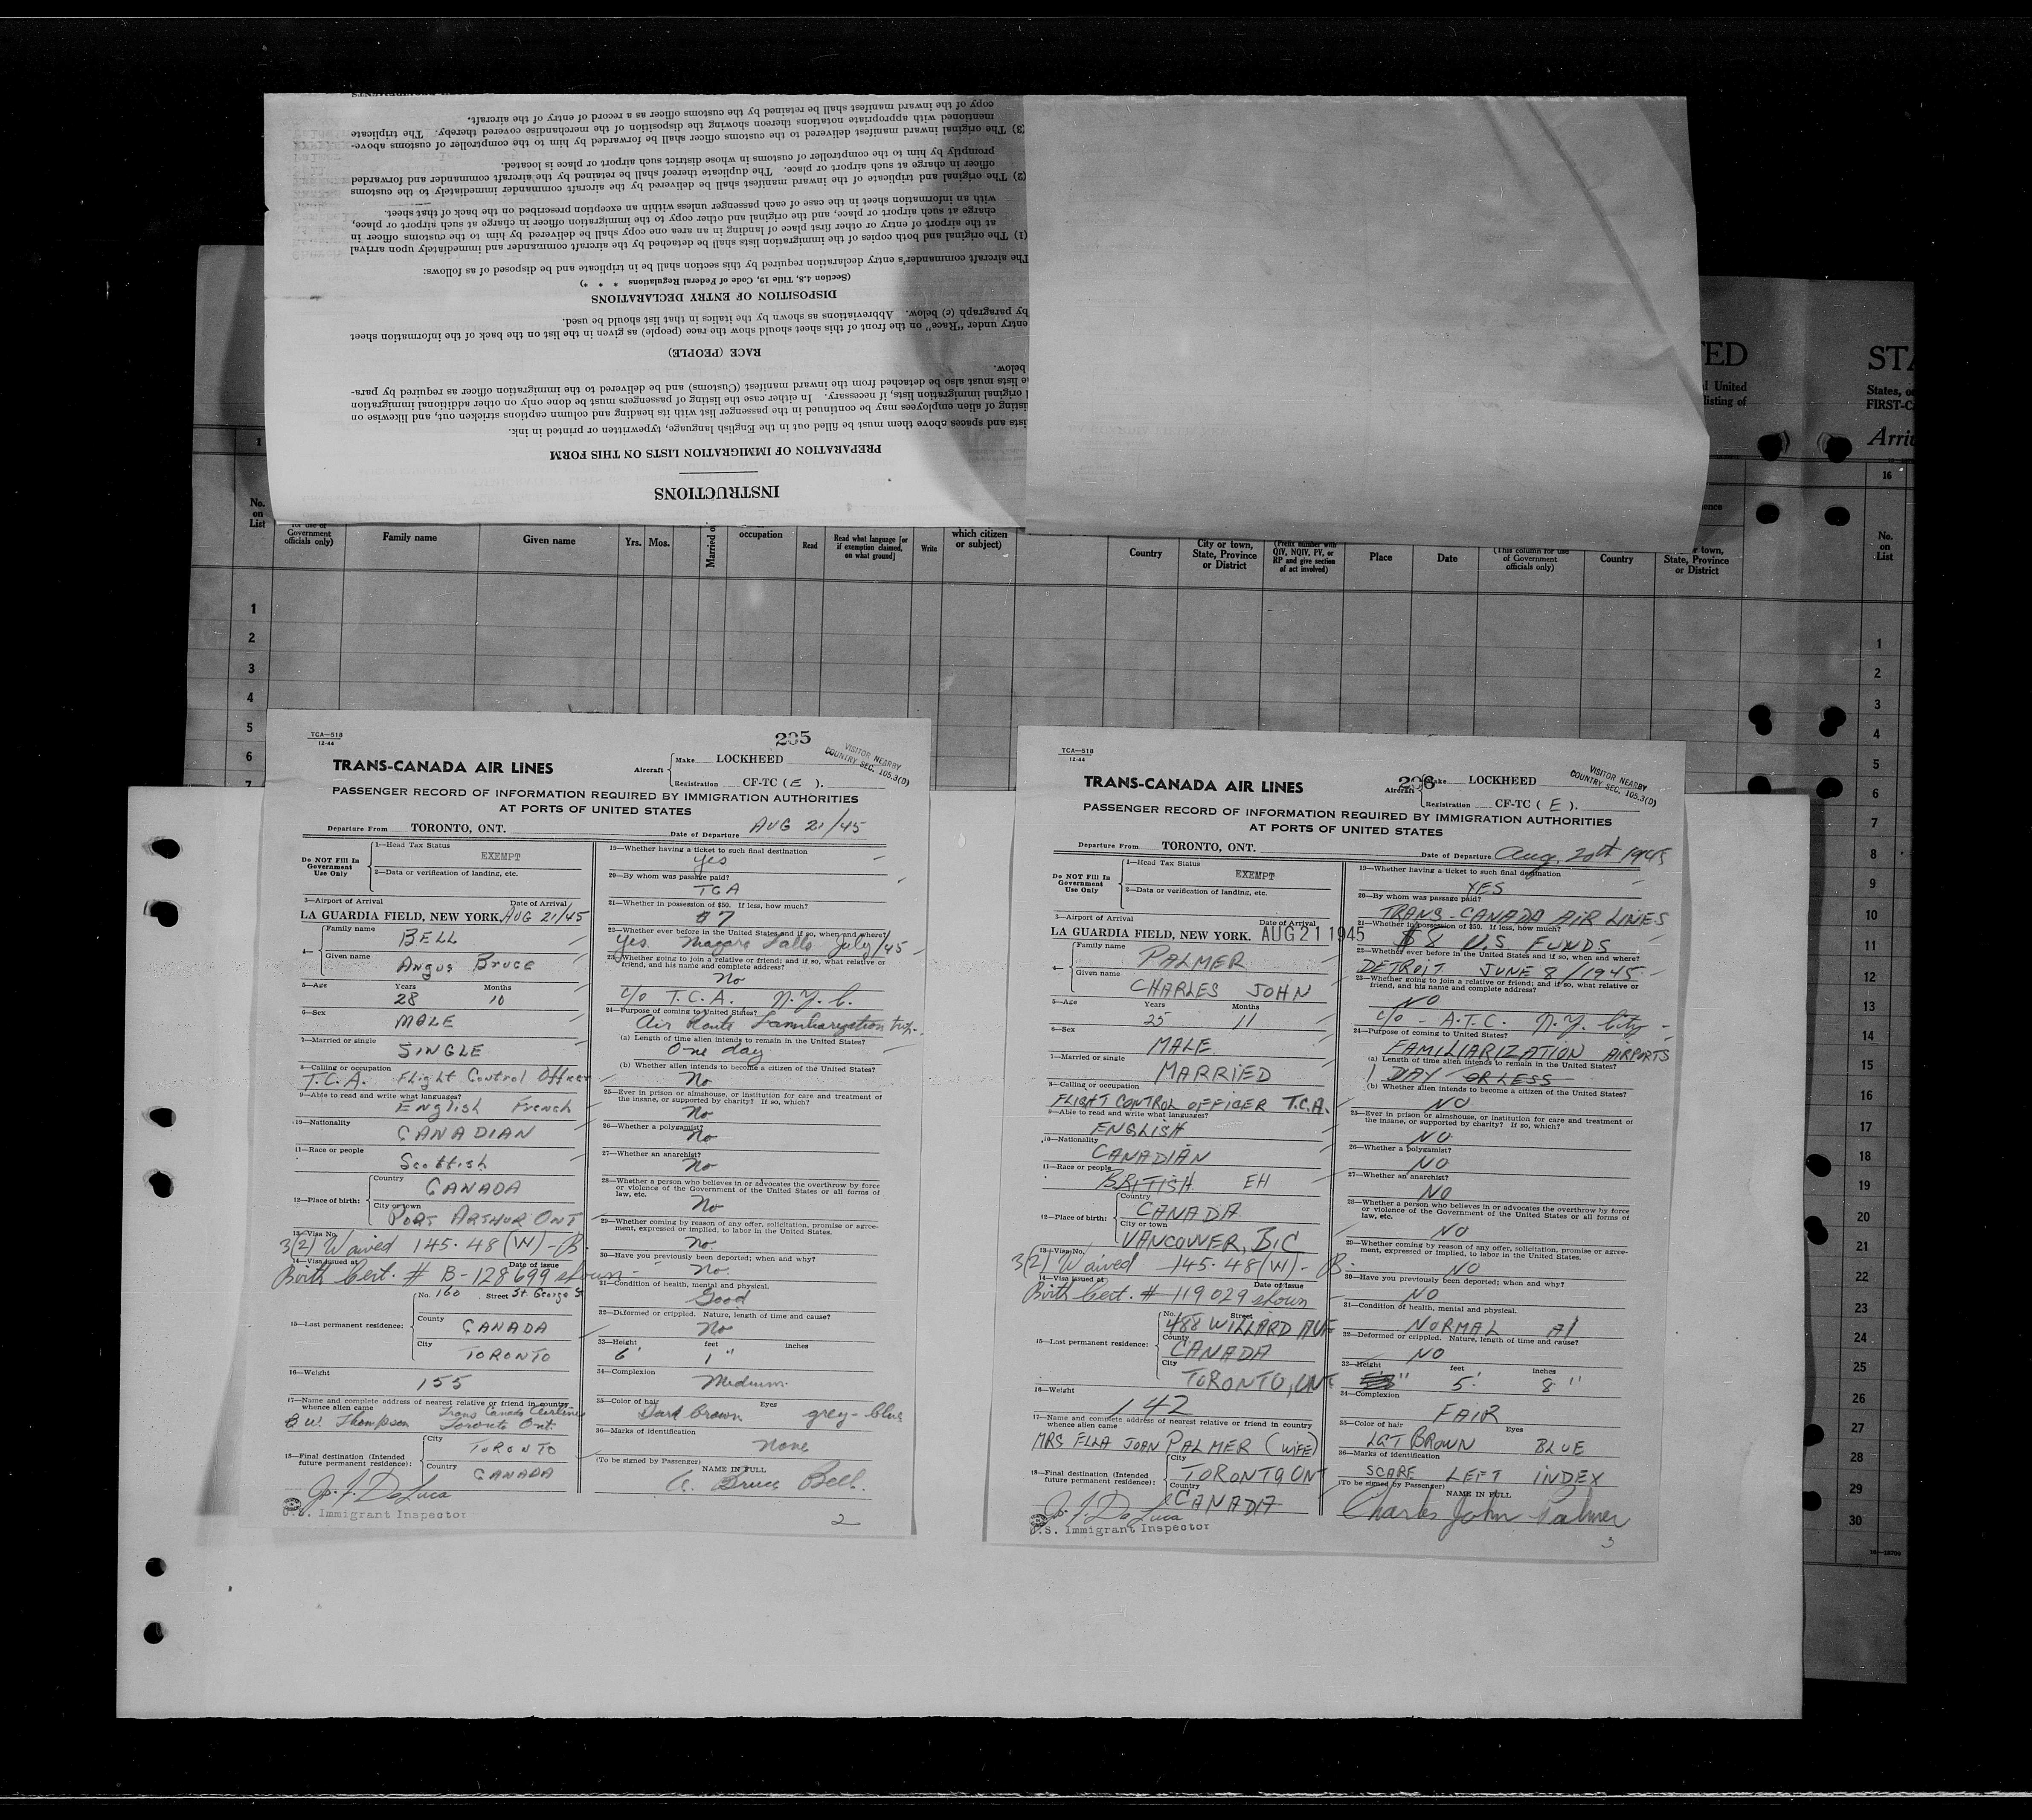 INSTRUCTIONS
PREPARATION OF IMMIGRATION LISTS ON THIS FORM
ists and spaces above them must be filled out in the English language, typewritten or printed in ink.
isting of alien employees may be continued in the passenger list with its heading and column captions stricken out, and likewise on
l original immigration lists, if necessary. In either case the listing of passengers must be done only on other additional immigration
e lists must also be detached from the inward manifest (Customs) and be delivered to the immigration officer as required by para-
below.
RACE (PEOPLE)
entry under "Race" on the front of this sheet should show the race (people) as given in the list on the back of the information sheet
by paragraph (c) below. Abbreviations as shown by the italics in that list should be used.
DISPOSITION OF ENTRY DECLARATIONS
(Section 4.8, Title 19, Code of Federal Regulations * * *)
The aircraft commander's entry declaration required by this section shall be in triplicate and be disposed of as follows:
(1) The original and both copies of the immigration lists shall be detached by the aircraft commander and immediately upon arrival
at the airport of entry or other first place of landing in an area one copy shall be delivered by him to the customs officer in
charge at such airport or place, and the original and other copy to the immigration officer in charge at such airport or place,
with an information sheet in the case of each passenger unless within an exception prescribed on the back of that sheet.
(2) The original and triplicate of the inward manifest shall be delivered by the aircraft commander immediately to the customs
officer in charge at such airport or place. The duplicate thereof shall be retained by the aircraft commander and forwarded
promptly by him to the comptroller of customs in whose district such airport or place is located.
(3) The original inward manifest delivered to the customs officer shall be forwarded by him to the comptroller of customs above-
mentioned with appropriate notations thereon showing the disposition of the merchandise covered thereby. The triplicate
copy of the inward manifest shall be retained by the customs officer as a record of entry of the aircraft.
TED STA
l United States, o
listing of FIRST-C
Arri
1 16
No. on List
for use of Government officials only)
Family name
Given name
Yrs. Mos.
Married o
occupation
Read
Read what language [or if exemption claimed, on what ground]
Write
which citizen or subject)
Country
City or town, State, Province or District
(Prefix number with QIV, NQIV, PV, or RP and give section of act involved)
Place
Date
(This column for use of Government officials only)
Country
r town, State, Province or District
No. on List
1
2
3
4
5
6
7
1
2
3
4
5
6
7
8
9
10
11
12
13
14
15
16
17
18
19
20
21
22
23
24
25
26
27
28
29
30
16—18709
TCA—518
12-44
295
VISITOR NEARBY
COUNTRY SEC. 105.3(D)
TRANS-CANADA AIR LINES
Aircraft
Make LOCKHEED
Registration CF-TC (E).
PASSENGER RECORD OF INFORMATION REQUIRED BY IMMIGRATION AUTHORITIES
AT PORTS OF UNITED STATES
Departure From TORONTO, ONT. Date of Departure AUG 21/45
Do NOT Fill In Government Use Only
1—Head Tax Status
EXEMPT
2—Data or verification of landing, etc.
3—Airport of Arrival Date of Arrival
LA GUARDIA FIELD, NEW YORK. AUG 21/45
4— Family name BELL
Given name Angus Bruce
5—Age Years 28 Months 10
6—Sex MALE
7—Married or single SINGLE
8—Calling or occupation
T.C.A. Flight Control Officer
9—Able to read and write what languages?
English French
10—Nationality CANADIAN
11—Race or people Scottish
12—Place of birth: Country CANADA
City or town PORT ARTHUR ONT
13—Visa No.
3(2) Waived 145.48(W)-B.
14—Visa issued at Date of issue
Birth Cert. # B-128699 shown
15—Last permanent residence: No. 160 Street St. George St
County CANADA
City TORONTO
16—Weight 155
17—Name and complete address of nearest relative or friend in country whence alien came
B W. Thompson Trans Canada Airlines
Toronto Ont.
18—Final destination (Intended future permanent residence): City TORONTO
Country CANADA
J. J. DeLuca
U.S. Immigrant Inspector
19—Whether having a ticket to such final destination
yes
20—By whom was passage paid?
TCA
21—Whether in possession of $50. If less, how much?
$7
22—Whether ever before in the United States and if so, when and where?
Yes. Niagara Falls July/45
23—Whether going to join a relative or friend; and if so, what relative or friend, and his name and complete address?
No
c/o T.C.A. N.Y.C.
24—Purpose of coming to United States?
Air Route Familiarization trip.
(a) Length of time alien intends to remain in the United States?
One day
(b) Whether alien intends to become a citizen of the United States?
No
25—Ever in prison or almshouse, or institution for care and treatment of the insane, or supported by charity? If so, which?
No
26—Whether a polygamist?
No
27—Whether an anarchist?
No
28—Whether a person who believes in or advocates the overthrow by force or violence of the Government of the United States or all forms of law, etc.
No
29—Whether coming by reason of any offer, solicitation, promise or agreement, expressed or implied, to labor in the United States.
No.
30—Have you previously been deported; when and why?
No.
31—Condition of health, mental and physical.
Good
32—Deformed or crippled. Nature, length of time and cause?
No
33—Height 6' feet 1" inches
34—Complexion
Medium
35—Color of hair Dark brown Eyes grey-blue
36—Marks of identification
None
(To be signed by Passenger) NAME IN FULL
A. Bruce Bell.
2
TCA—518
12-44
296
VISITOR NEARBY
COUNTRY SEC. 105.3(D)
TRANS-CANADA AIR LINES
Aircraft
Make LOCKHEED
Registration CF-TC (E).
PASSENGER RECORD OF INFORMATION REQUIRED BY IMMIGRATION AUTHORITIES
AT PORTS OF UNITED STATES
Departure From TORONTO, ONT. Date of Departure Aug. 20th 1945
Do NOT Fill In Government Use Only
1—Head Tax Status
EXEMPT
2—Data or verification of landing, etc.
3—Airport of Arrival Date of Arrival
LA GUARDIA FIELD, NEW YORK. AUG 21 1945
4— Family name PALMER
Given name CHARLES JOHN
5—Age Years 25 Months 11
6—Sex MALE
7—Married or single MARRIED
8—Calling or occupation
FLIGHT CONTROL OFFICER T.C.A.
9—Able to read and write what languages?
ENGLISH
10—Nationality CANADIAN
11—Race or people BRITISH EH
12—Place of birth: Country CANADA
City or town VANCOUVER, B.C
13—Visa No.
3(2) Waived 145.48(W)-B.
14—Visa issued at Date of issue
Birth Cert. # 119029 shown
15—Last permanent residence: No. Street
488 WILLARD AVE
County CANADA
City TORONTO, ONT
16—Weight 142
17—Name and complete address of nearest relative or friend in country whence alien came
MRS ELLA JOAN PALMER (WIFE)
18—Final destination (Intended future permanent residence): City TORONTO ONT
Country CANADA
J. J. DeLuca
U.S. Immigrant Inspector
19—Whether having a ticket to such final destination
YES
20—By whom was passage paid?
TRANS-CANADA AIR LINES
21—Whether in possession of $50. If less, how much?
$8 U.S. FUNDS
22—Whether ever before in the United States and if so, when and where?
DETROIT JUNE 8/1945
23—Whether going to join a relative or friend; and if so, what relative or friend, and his name and complete address?
NO
c/o - A.T.C. N.Y. City
24—Purpose of coming to United States?
FAMILIARIZATION AIRPORTS
(a) Length of time alien intends to remain in the United States?
1 DAY OR LESS
(b) Whether alien intends to become a citizen of the United States?
NO
25—Ever in prison or almshouse, or institution for care and treatment of the insane, or supported by charity? If so, which?
NO
26—Whether a polygamist?
NO
27—Whether an anarchist?
NO
28—Whether a person who believes in or advocates the overthrow by force or violence of the Government of the United States or all forms of law, etc.
NO
29—Whether coming by reason of any offer, solicitation, promise or agreement, expressed or implied, to labor in the United States.
NO
30—Have you previously been deported; when and why?
NO
31—Condition of health, mental and physical.
NORMAL A1
32—Deformed or crippled. Nature, length of time and cause?
NO
33—Height feet 5' inches 8"
34—Complexion
FAIR
35—Color of hair LGT BROWN Eyes BLUE
36—Marks of identification
SCARE LEFT INDEX
(To be signed by Passenger) NAME IN FULL
Charles John Palmer
3